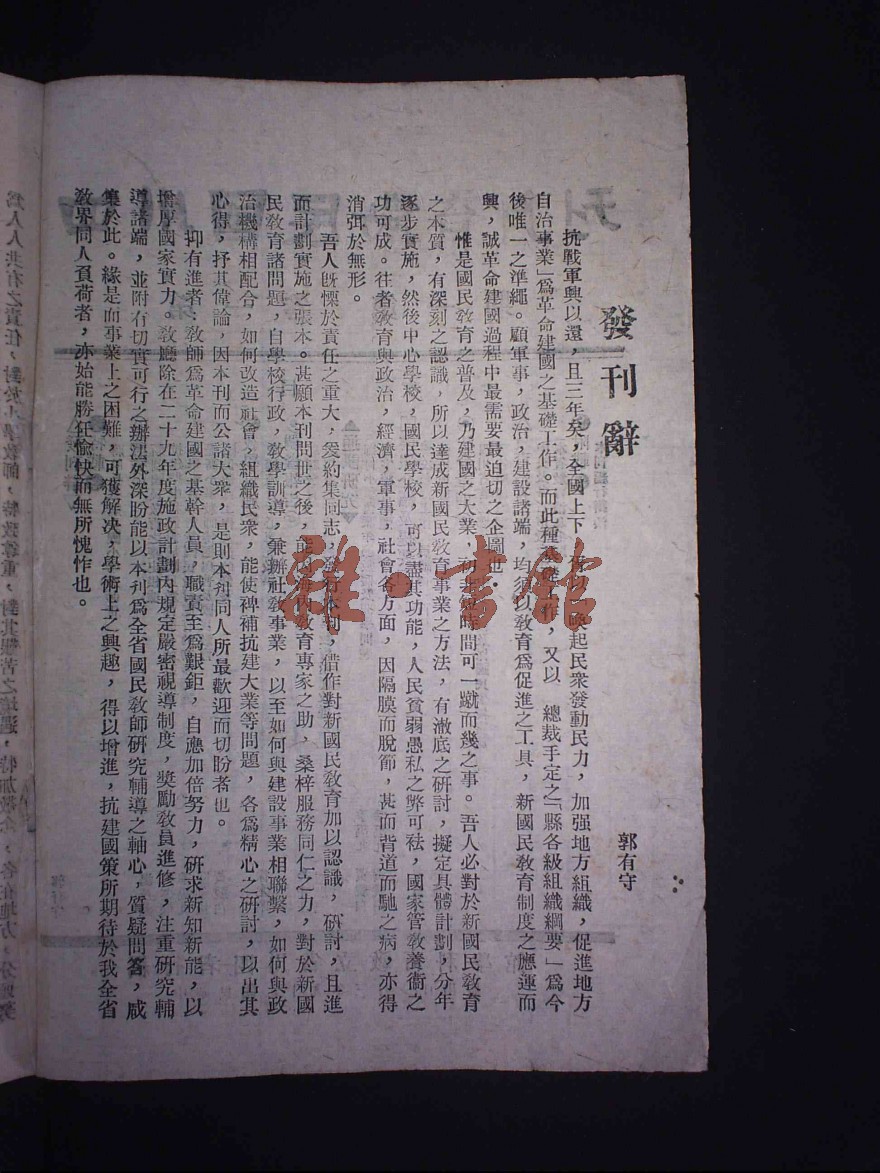 發刊辭
郭有守
抗戰軍興以還，且三年矣，全國上下，所以喚起民衆發動民力，加强地方組織，促進地方
自治事業」爲革命建國之基礎工作。而此種基礎工作，又以　總裁手定之「縣各級組織綱要」爲今
後唯一之準繩。顧軍事，政治，建設諸端，均須以敎育爲促進之工具，新國民敎育制度之應運而
興，誠革命建國過程中最需要最迫切之企圖也．
惟是國民敎育之普及，乃建國之大業，初非短時間可一蹴而幾之事。吾人必對於新國民敎育
之本質，有深刻之認識，所以達成新國民敎育事業之方法，有澈底之研討，擬定具體計劃，分年
逐步實施，然後中心學校，國民學校，可以盡其功能，人民貧弱愚私之弊可祛，國家管敎養衞之
功可成。往者敎育與政治，經濟，軍事，社會各方面，因隔膜而脫節，甚而背道而馳之病，亦得
消弭於無形．
吾人旣懍於責任之重大，爰約集同志，發行本刊，借作對新國民敎育加以認識，研討，且進
而計劃實施之張本。甚願本刊問世之後，能因海內敎育專家之助，桑梓服務同仁之力，對於新國
民敎育諸問題，自學校行政，敎學訓導，兼辦社敎事業，以至如何與建設事業相聯繫，如何與政
治機構相配合，如何改造社會，組織民衆，能使裨補抗建大業等問題，各爲精心之研討，以出其
心得，抒其偉論，因本刊而公諸大衆，是則本刊同人所最歡迎而切盼者也。
抑有進者：敎師爲革命建國之基幹人員，職責至爲艱鉅，自應加倍努力，研求新知新能，以
增厚國家實力。敎廳除在二十九年度施政計劃內規定嚴密視導制度，奬勵敎員進修，注重研究輔
導諸端，並附有切實可行之辦法外深盼能以本刊爲全省國民敎師研究輔導之軸心，質疑問答，咸
集於此。緣是而事業上之困難，可獲解决，學術上之興趣，得以增進，抗建國策所期待於我全省
敎界同人負荷者，亦始能勝任愉快而無所愧怍也。
雜·書館